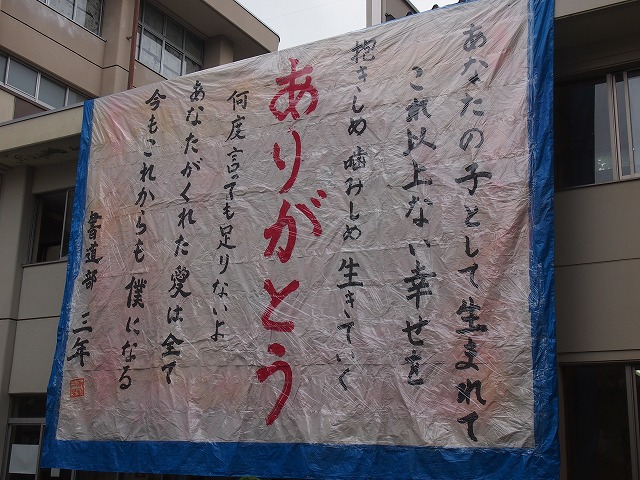 あなたの子として生まれて
これ以上ない幸せを
抱きしめ 噛みしめ 生きていく
ありがとう
何度言っても足りないよ
あなたがくれた愛は全て
今もこれからも 僕になる
書道部 三年